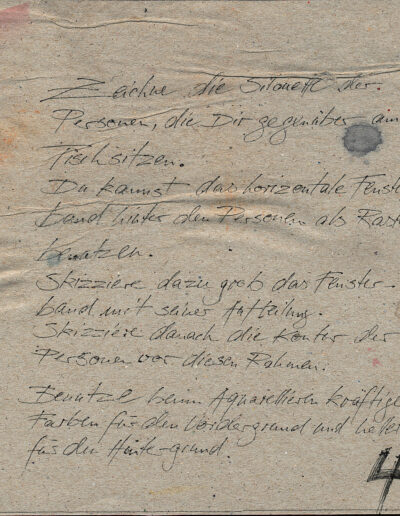 Zeichne die Silouett der
Personen, die Dir gegenüber am
Tisch sitzen.
Du kannst das horizontale Fenste
band hinter den Personen als Rast
benutzen.
Skizziere dazu grob das Fenster-
band mit seiner Aufteilung.
Skizziere danach die Kontur der
Personen vor diesen Rahmen.
Benutze beim Aquarellieren kräftige
Farben für den Vordergrund und helle
für den Hintergrund.
4